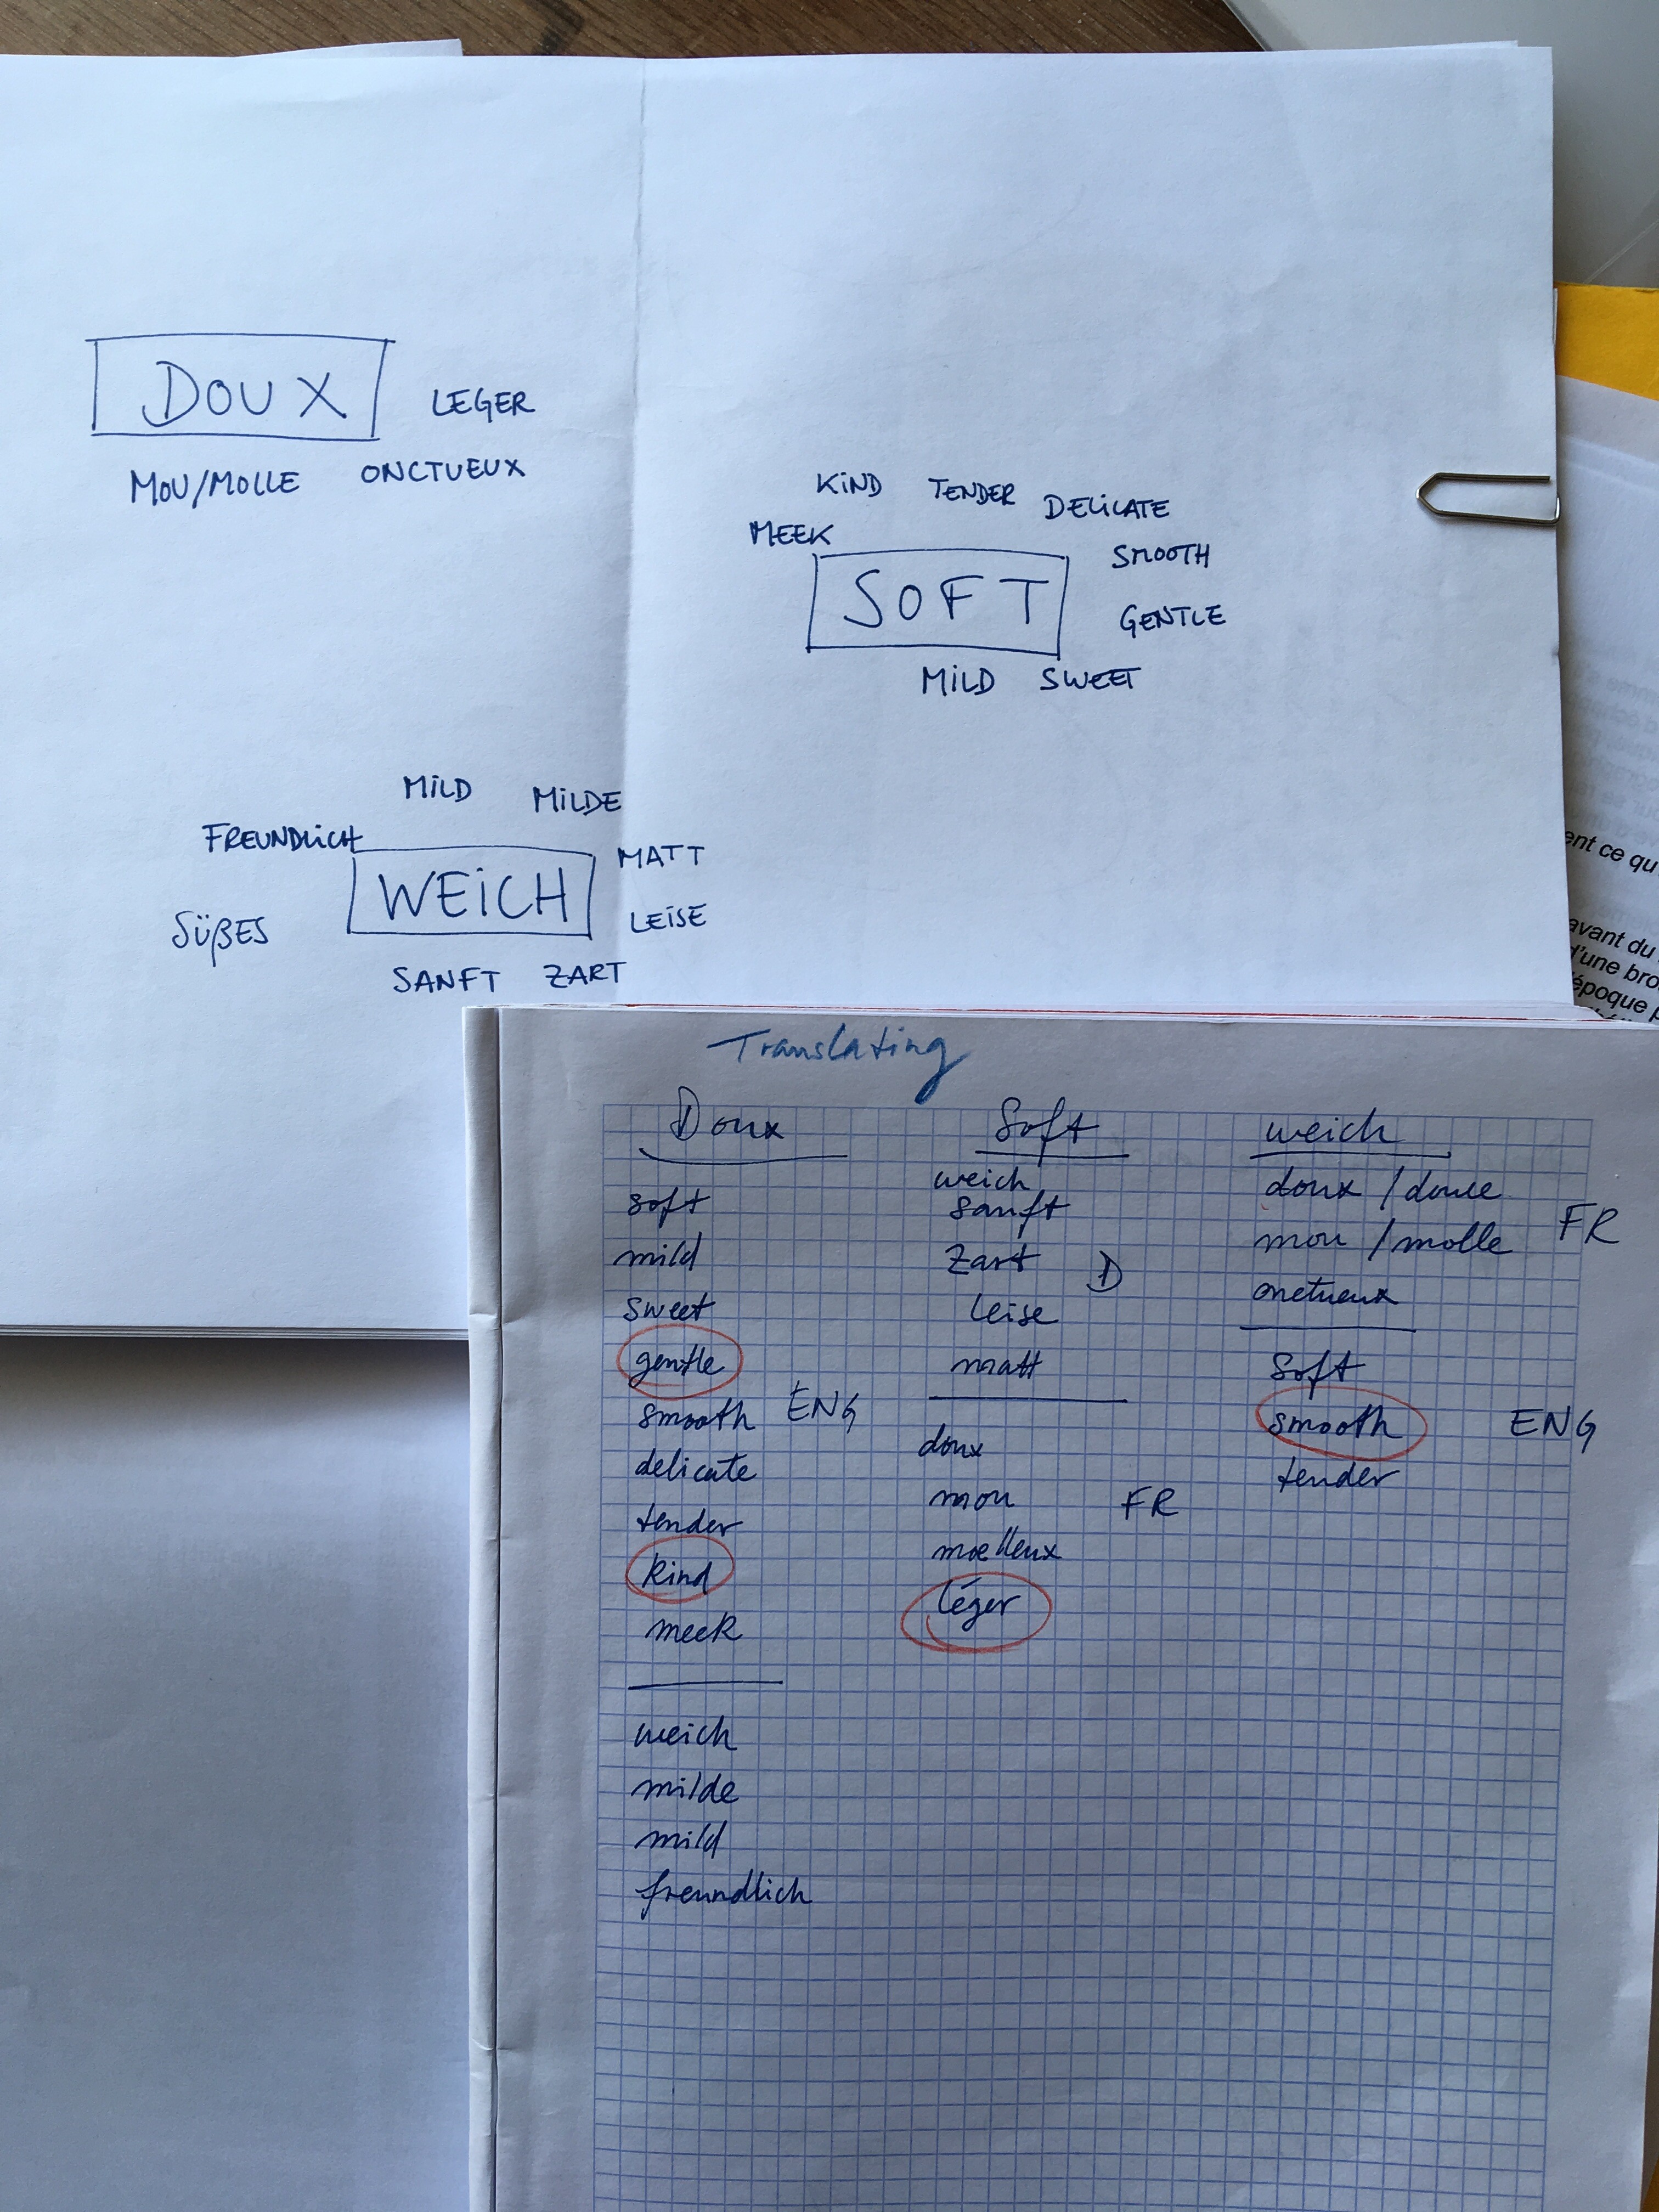 DOUX
LEGER
MOU/MOLLE ONCTUEUX
KIND TENDER DELICATE
MEEK
SMOOTH
SOFT
GENTLE
MILD SWEET
MILD MILDE
FREUNDLICH
MATT
WEICH
LEISE
SÜßES
SANFT ZART
ent ce qu
avant du
d'une bro
époque p
Translating
Doux
soft
mild
sweet
gentle
smooth ENG
delicate
tender
kind
meek
weich
milde
mild
freundlich
Soft
weich
sanft
zart D
leise
matt
doux
mou FR
moelleux
léger
weich
doux / douce
mou / molle FR
onctueux
soft
smooth ENG
tender